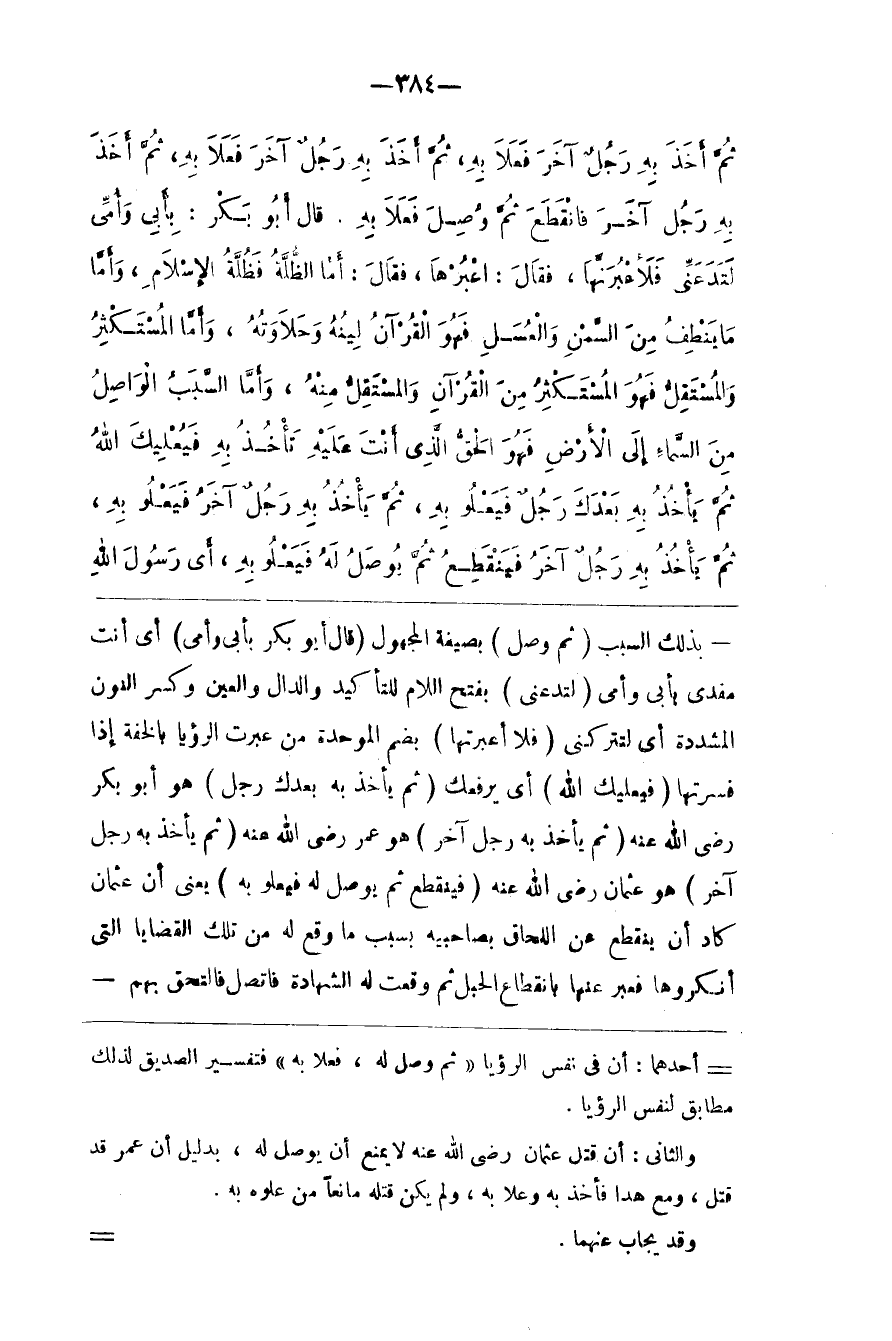 —٣٨٤—
ثُمَّ أَخَذَ بِهِ رَجُلٌ آخَرَ فَعَلَا بِهِ، ثُمَّ أَخَذَ بِهِ رَجُلٌ آخَرَ فَعَلَا بِهِ، ثُمَّ أَخَذَ
بِهِ رَجُل آخَرَ فانْقَطَعَ ثُمَّ وُصِلَ فَعَلَا بِهِ . قال أَبُو بَكْر : بِأَبِي وَأُمِّى
لَتَدَعَنِّى فَلَأَعْبُرَنَّهَا ، فقالَ : اعْبُرْهَا ، فقَالَ : أَمَّا الظُّلَّةُ فَظُلَّةُ الإِسْلَامِ ، وَأَمَّا
مَايَنْطِفُ مِنَ السَّمْنِ وَالْعَسَلِ فَهُوَ الْقُرْآنُ لِينُهُ وَحَلَاوَتُهُ ، وَأَمَّا المُسْتَكْثِرُ
وَالمُسْتَقِلُّ فَهُوَ المُسْتَكْثِرُ مِنَ الْقُرْآنِ وَالمسْتَقِلُّ مِنْهُ ، وَأَمَّا السَّبَبُ الْوَاصِلُ
مِنَ السَّمَاءِ إِلَى الْأَرْضِ فَهُوَ الحَقُّ الَّذِى أَنْتَ عَلَيْهِ تَأْخُذُ بِهِ فَيُعْلِيكَ اللهُ
ثُمَّ يَأْخُذُ بِهِ بَعْدَكَ رَجُلٌ فَيَعْلُو بِهِ ، ثُمَّ يَأْخُذُ بِهِ رَجُلٌ آخَرُ فَيَعْلُو بِهِ ،
ثُمَّ يَأْخُذُ بِهِ رَجُلٌ آخَرُ فَيَنْقَطِعُ ثُمَّ يُوصَلُ لَهُ فَيَعْلُو بِهِ ، أَى رَسُولَ اللهِ
— بذلك السبب ( ثم وصل ) بصيغة المجهول (قال أبو بكر بأبى وأمى) أى أنت
مفدى بأبى وأمى ( لتدعنى ) بفتح اللام للتأكيد والدال والعين وكسر النون
المشددة أى لتتركنى ( فلا أعبرتها ) بضم الموحدة من عبرت الرؤيا بالخفة إذا
فسرتها ( فيعليك الله ) أى يرفعك ( ثم يأخذ به بعدك رجل ) هو أبو بكر
رضى الله عنه ( ثم يأخذ به رجل آخر ) هو عمر رضى الله عنه ( ثم يأخذ به رجل
آخر ) هو عثمان رضى الله عنه ( فينقطع ثم يوصل له فيعلو به ) يعنى أن عثمان
كاد أن ينقطع عن اللحاق بصاحبيه بسبب ما وقع له من تلك القضايا التى
أنكروها فعبر عنها بانقطاع الحبل ثم وقعت له الشهادة فاتصل فالتحق بهم —
= أحدهما : أن فى نفس الرؤيا « ثم وصل له ، فعلا به » فتفسير الصديق لذلك
مطابق لنفس الرؤيا .
والثانى : أن قتل عثمان رضى الله عنه لا يمنع أن يوصل له ، بدليل أن عمر قد
قتل ، ومع هدا فأخذ به وعلا به ، ولم يكن قتله مانعاً من علوه به .
وقد يجاب عنهما . =